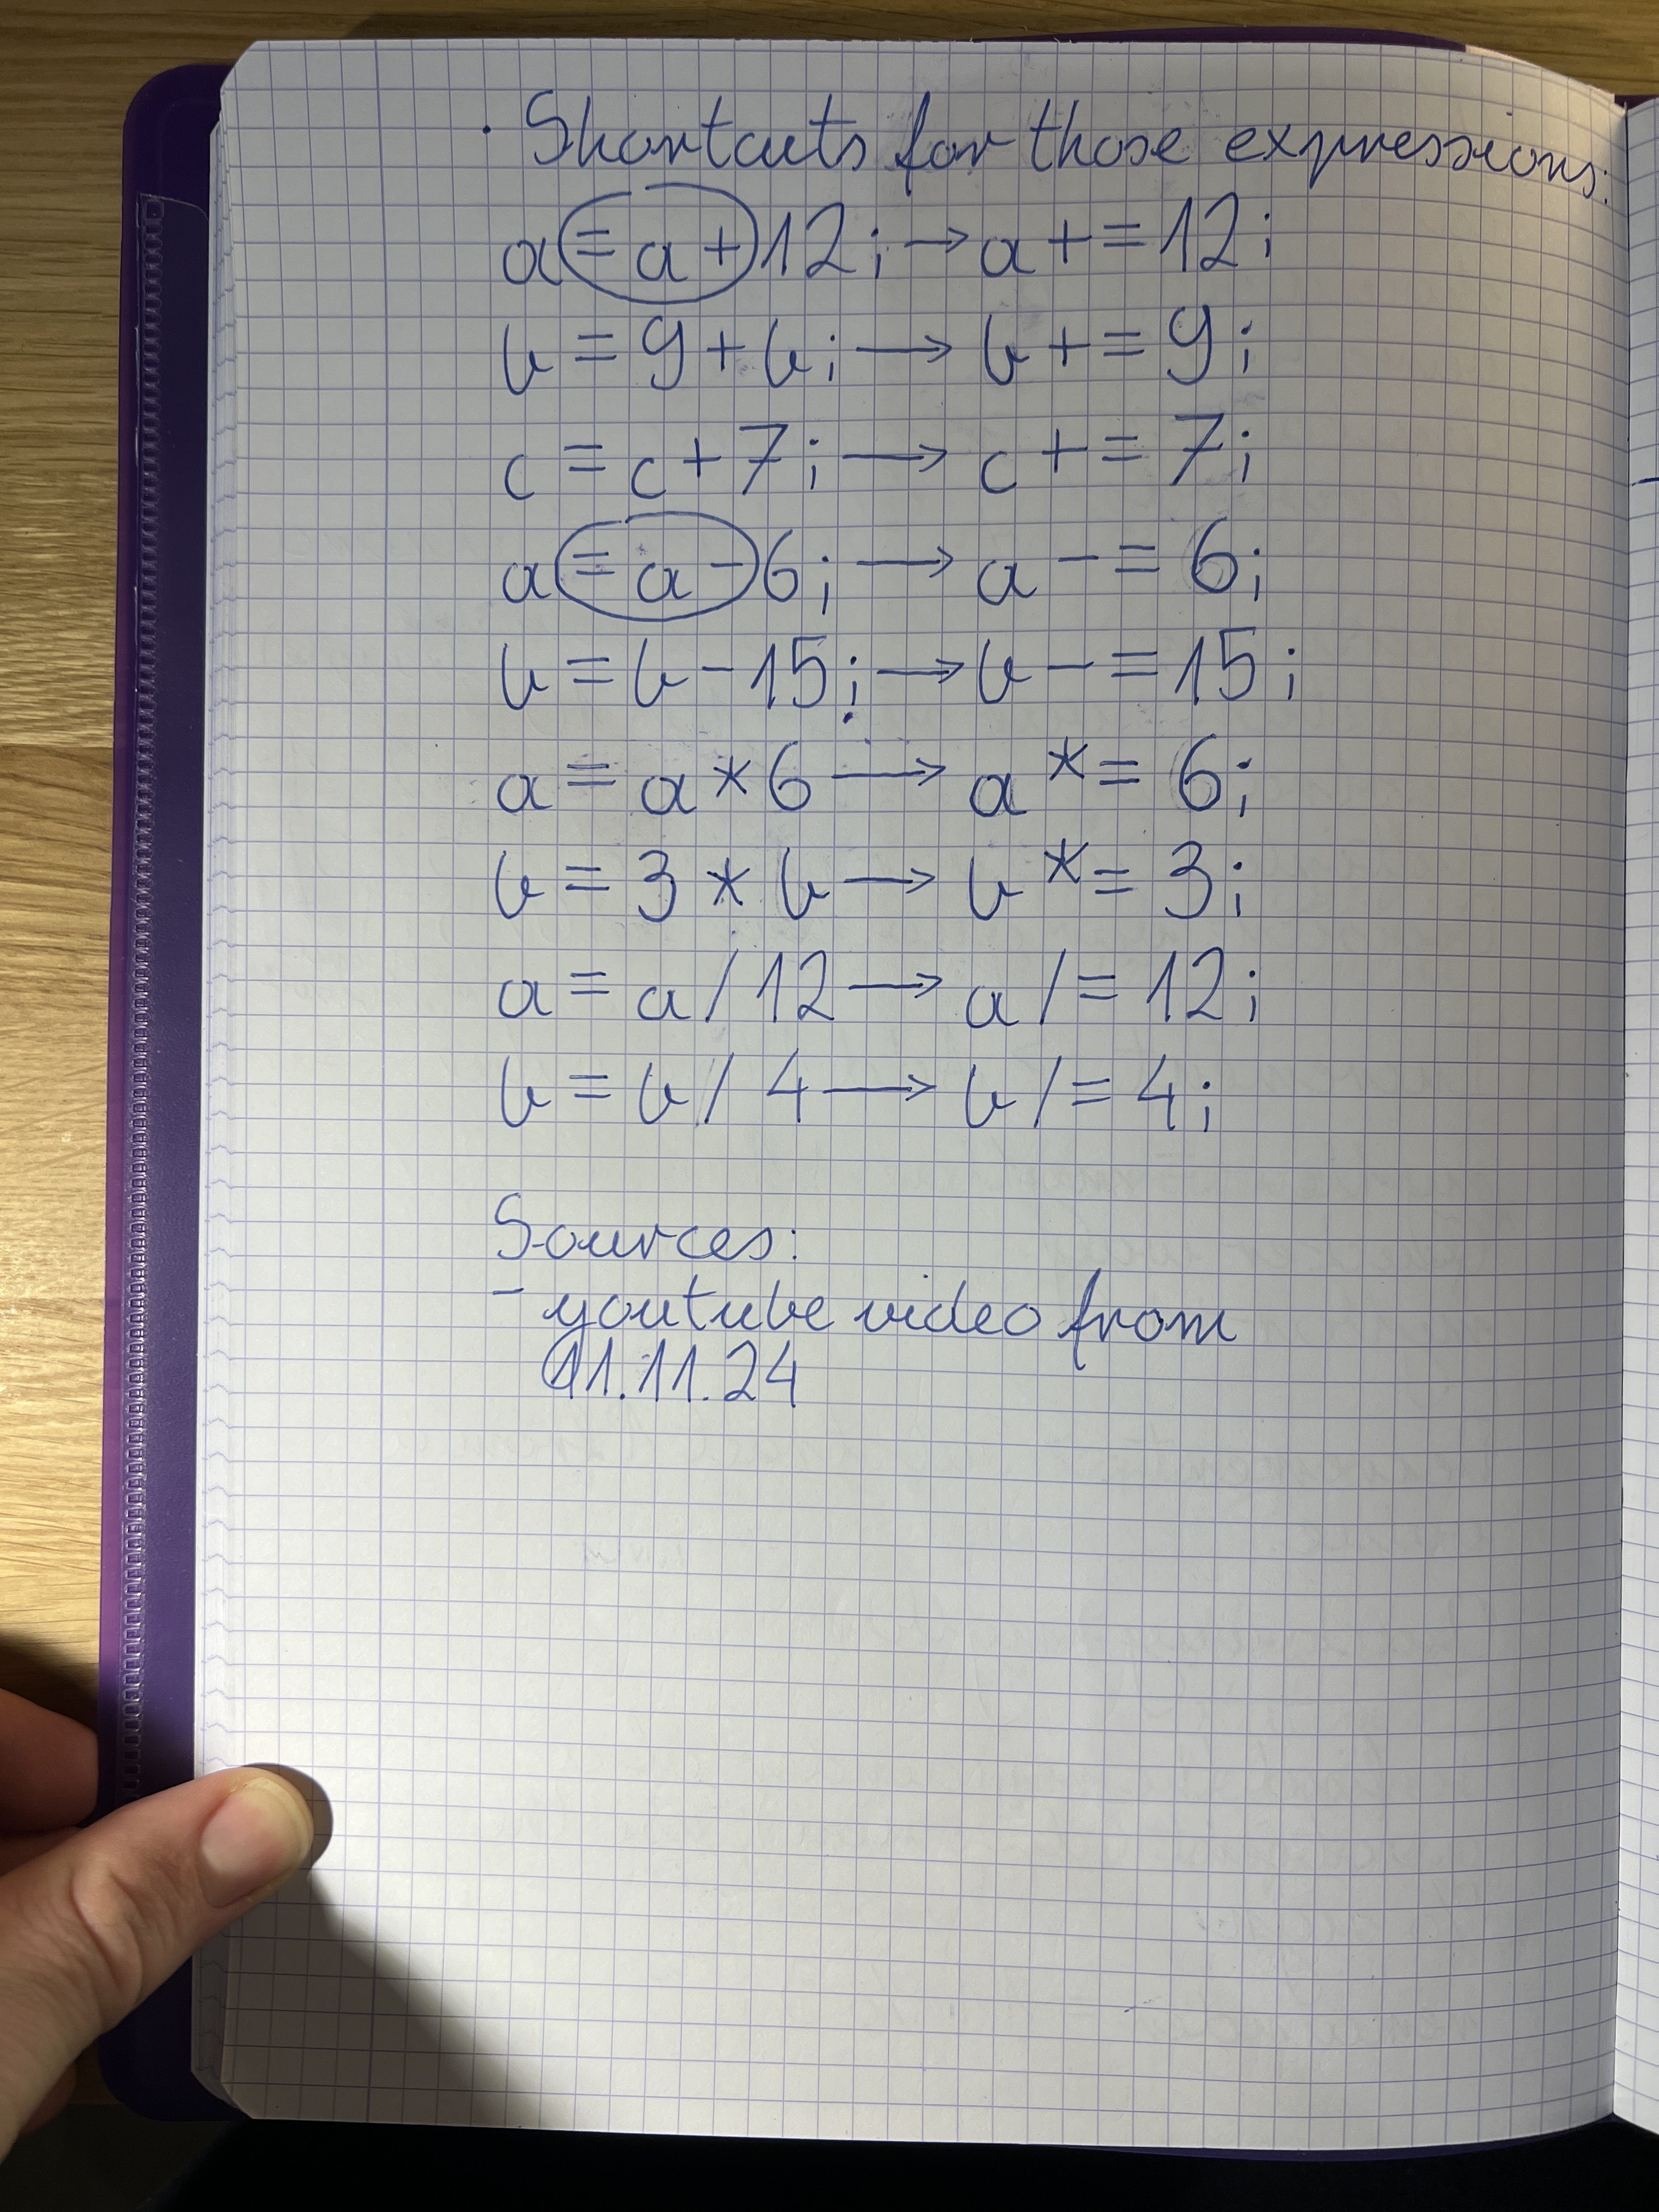 · Shortcuts for those expressions:
a = a + 12; → a += 12;
b = 9 + b; → b += 9;
c = c + 7; → c += 7;
a = a - 6; → a -= 6;
b = b - 15; → b -= 15;
a = a * 6 → a *= 6;
b = 3 * b → b *= 3;
a = a / 12 → a /= 12;
b = b / 4 → b /= 4;
Sources:
- youtube video from
11.11.24